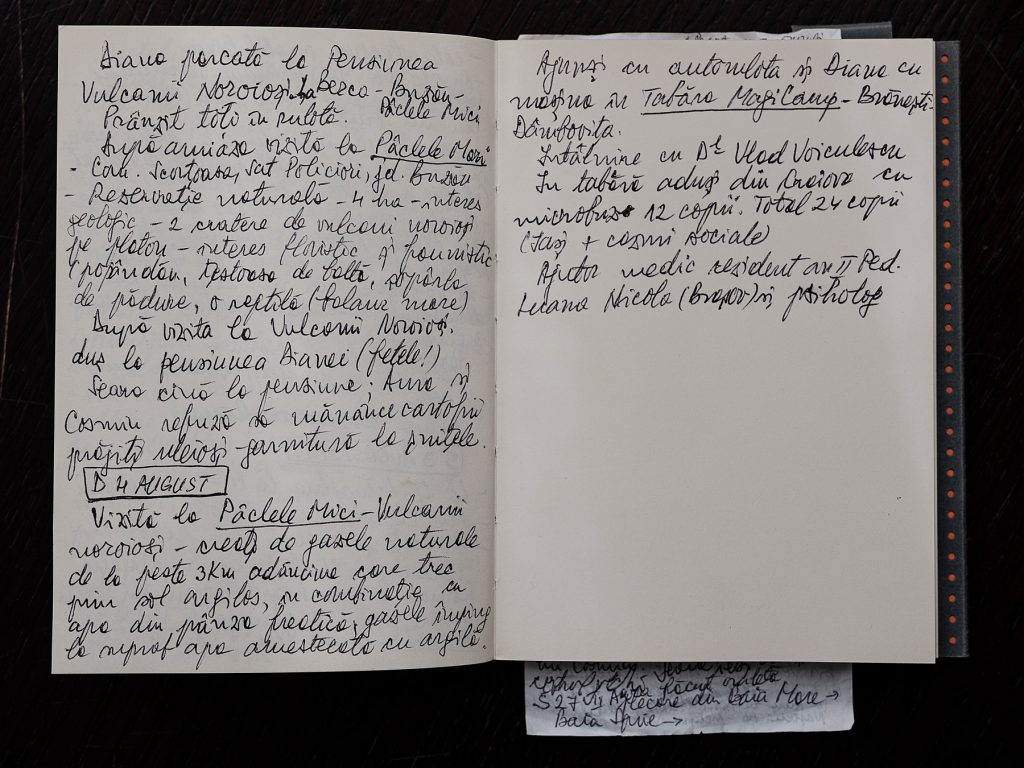 Diana parcată la Pensiunea
Vulcanii Noroioși la Berca - Buzău -
Prânzit toți în rulotă. Pâclele Mici
După amiaza vizită la Pâclele Mari
- Com. Scorțoasa, Sat Policiori, jd. Buzău
- Rezervație naturală - 4 ha - interes
geologic - 2 cratere de vulcani noroioși
pe platou - interes floristic și faunistic
(popândău, țestoasa de baltă, șopârla
de pădure, o reptilă (balaur mare)
După vizita la Vulcanii Noroioși.
duș la pensiunea Dianei (fetele!)
Seara cină la pensiune; Ama și
Cosmin refuză să mănânce cartofii
prăjiți uleioși - garnitură la șnițele.
D 4 AUGUST
Vizită la Pâclele Mici - Vulcanii
noroioși - creați de gazele naturale
de la peste 3Km adâncime care trec
prin sol argilos, în combinație cu
apa din pânza freatică, gazele împing
la supraf apa amestecată cu argilă.
Ajunși cu autorulota și Diana cu
mașina în Tabăra MagiCamp - Brănești
Dâmbovița.
Întâlnire cu Dl Vlad Voiculescu
În tabără aduși din Craiova cu
microbuz 12 copii. Total 24 copii
(Iași + cazuri sociale)
Ajutor medic rezident an II Ped.
Luana Nicola (Brașov) și psiholog
S 27 VII plecare din Baia Mare →
Baia Sprie →